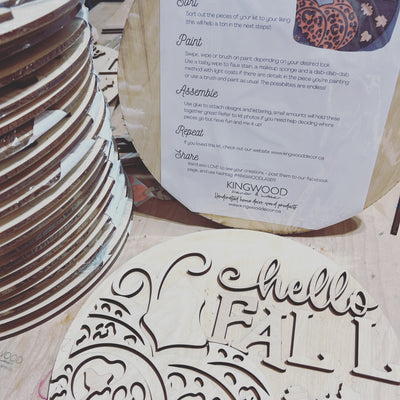 Sort
Sort out the pieces of your kit to your liking
this will help a ton in the next steps!!
Paint
Swipe, wipe or brush on paint depending on your desired look.
Use a baby wipe to faux stain, a makeup sponge and a dab-dab-dab
method with light coats if there are details in the piece you're painting
or use a brush and paint as usual! The possibilities are endless!
Assemble
Use glue to attach designs and lettering, small amounts will hold these
together great! Refer to kit photos if you need help deciding where
pieces go but have fun and mix it up!
Repeat
If you loved this kit, check out our website www.kingwooddecor.ca
Share
Rob and I would LOVE to see your creations - post them to our facebook
page, and use hashtag
KINGWOOD
Handcrafted home decor wood products
www.kingwooddecor.ca
hello
FALL